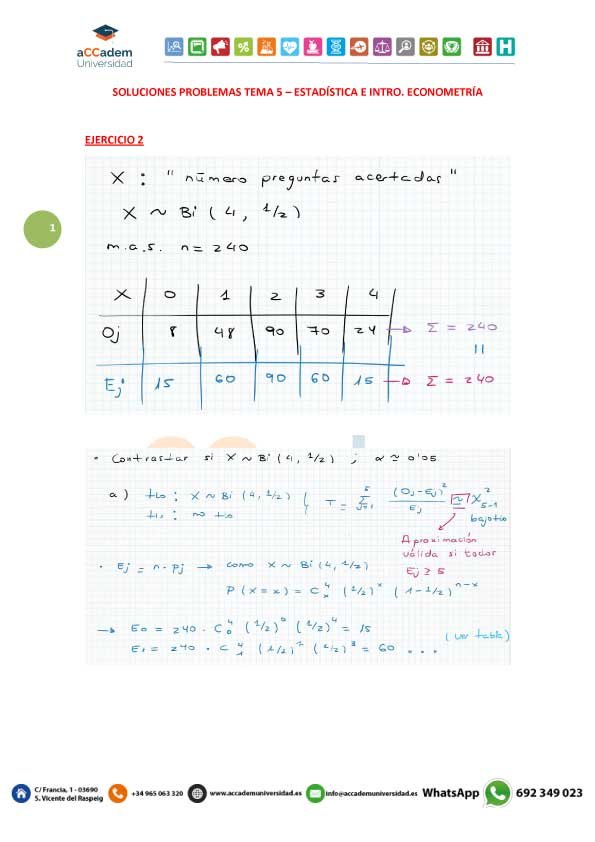 aCCadem
Universidad
SOLUCIONES PROBLEMAS TEMA 5 – ESTADÍSTICA E INTRO. ECONOMETRÍA
EJERCICIO 2
1
X : " número preguntas acertadas "
X ~ Bi ( 4, 1/2 )
m.a.s. n = 240
X 0 1 2 3 4
Oj 8 48 90 70 24 → Σ = 240
||
Ej 15 60 90 60 15 → Σ = 240
• Contrastar si X ~ Bi ( 4, 1/2 ) ; α = 0'05
a ) H0 : X ~ Bi ( 4, 1/2 ) { T = Σ⁵ⱼ₌₁ (Oj - Ej)² / Ej ~ X²₅₋₁
H1 : no H0 bajo H0
Aproximación
válida si todos
Ej ≥ 5
• Ej = n · Pj → como X ~ Bi ( 4, 1/2 )
P ( X = x ) = C⁴ₓ ( 1/2 )ˣ ( 1 - 1/2 )ⁿ⁻ˣ
→ E0 = 240 · C⁴₀ ( 1/2 )⁰ ( 1/2 )⁴ = 15
E1 = 240 · C⁴₁ ( 1/2 )¹ ( 1/2 )³ = 60 . . . ( ver tabla )
C/ Francia, 1 - 03690
S. Vicente del Raspeig
+34 965 063 320
www.accademuniversidad.es
info@accademuniversidad.es
WhatsApp 692 349 023